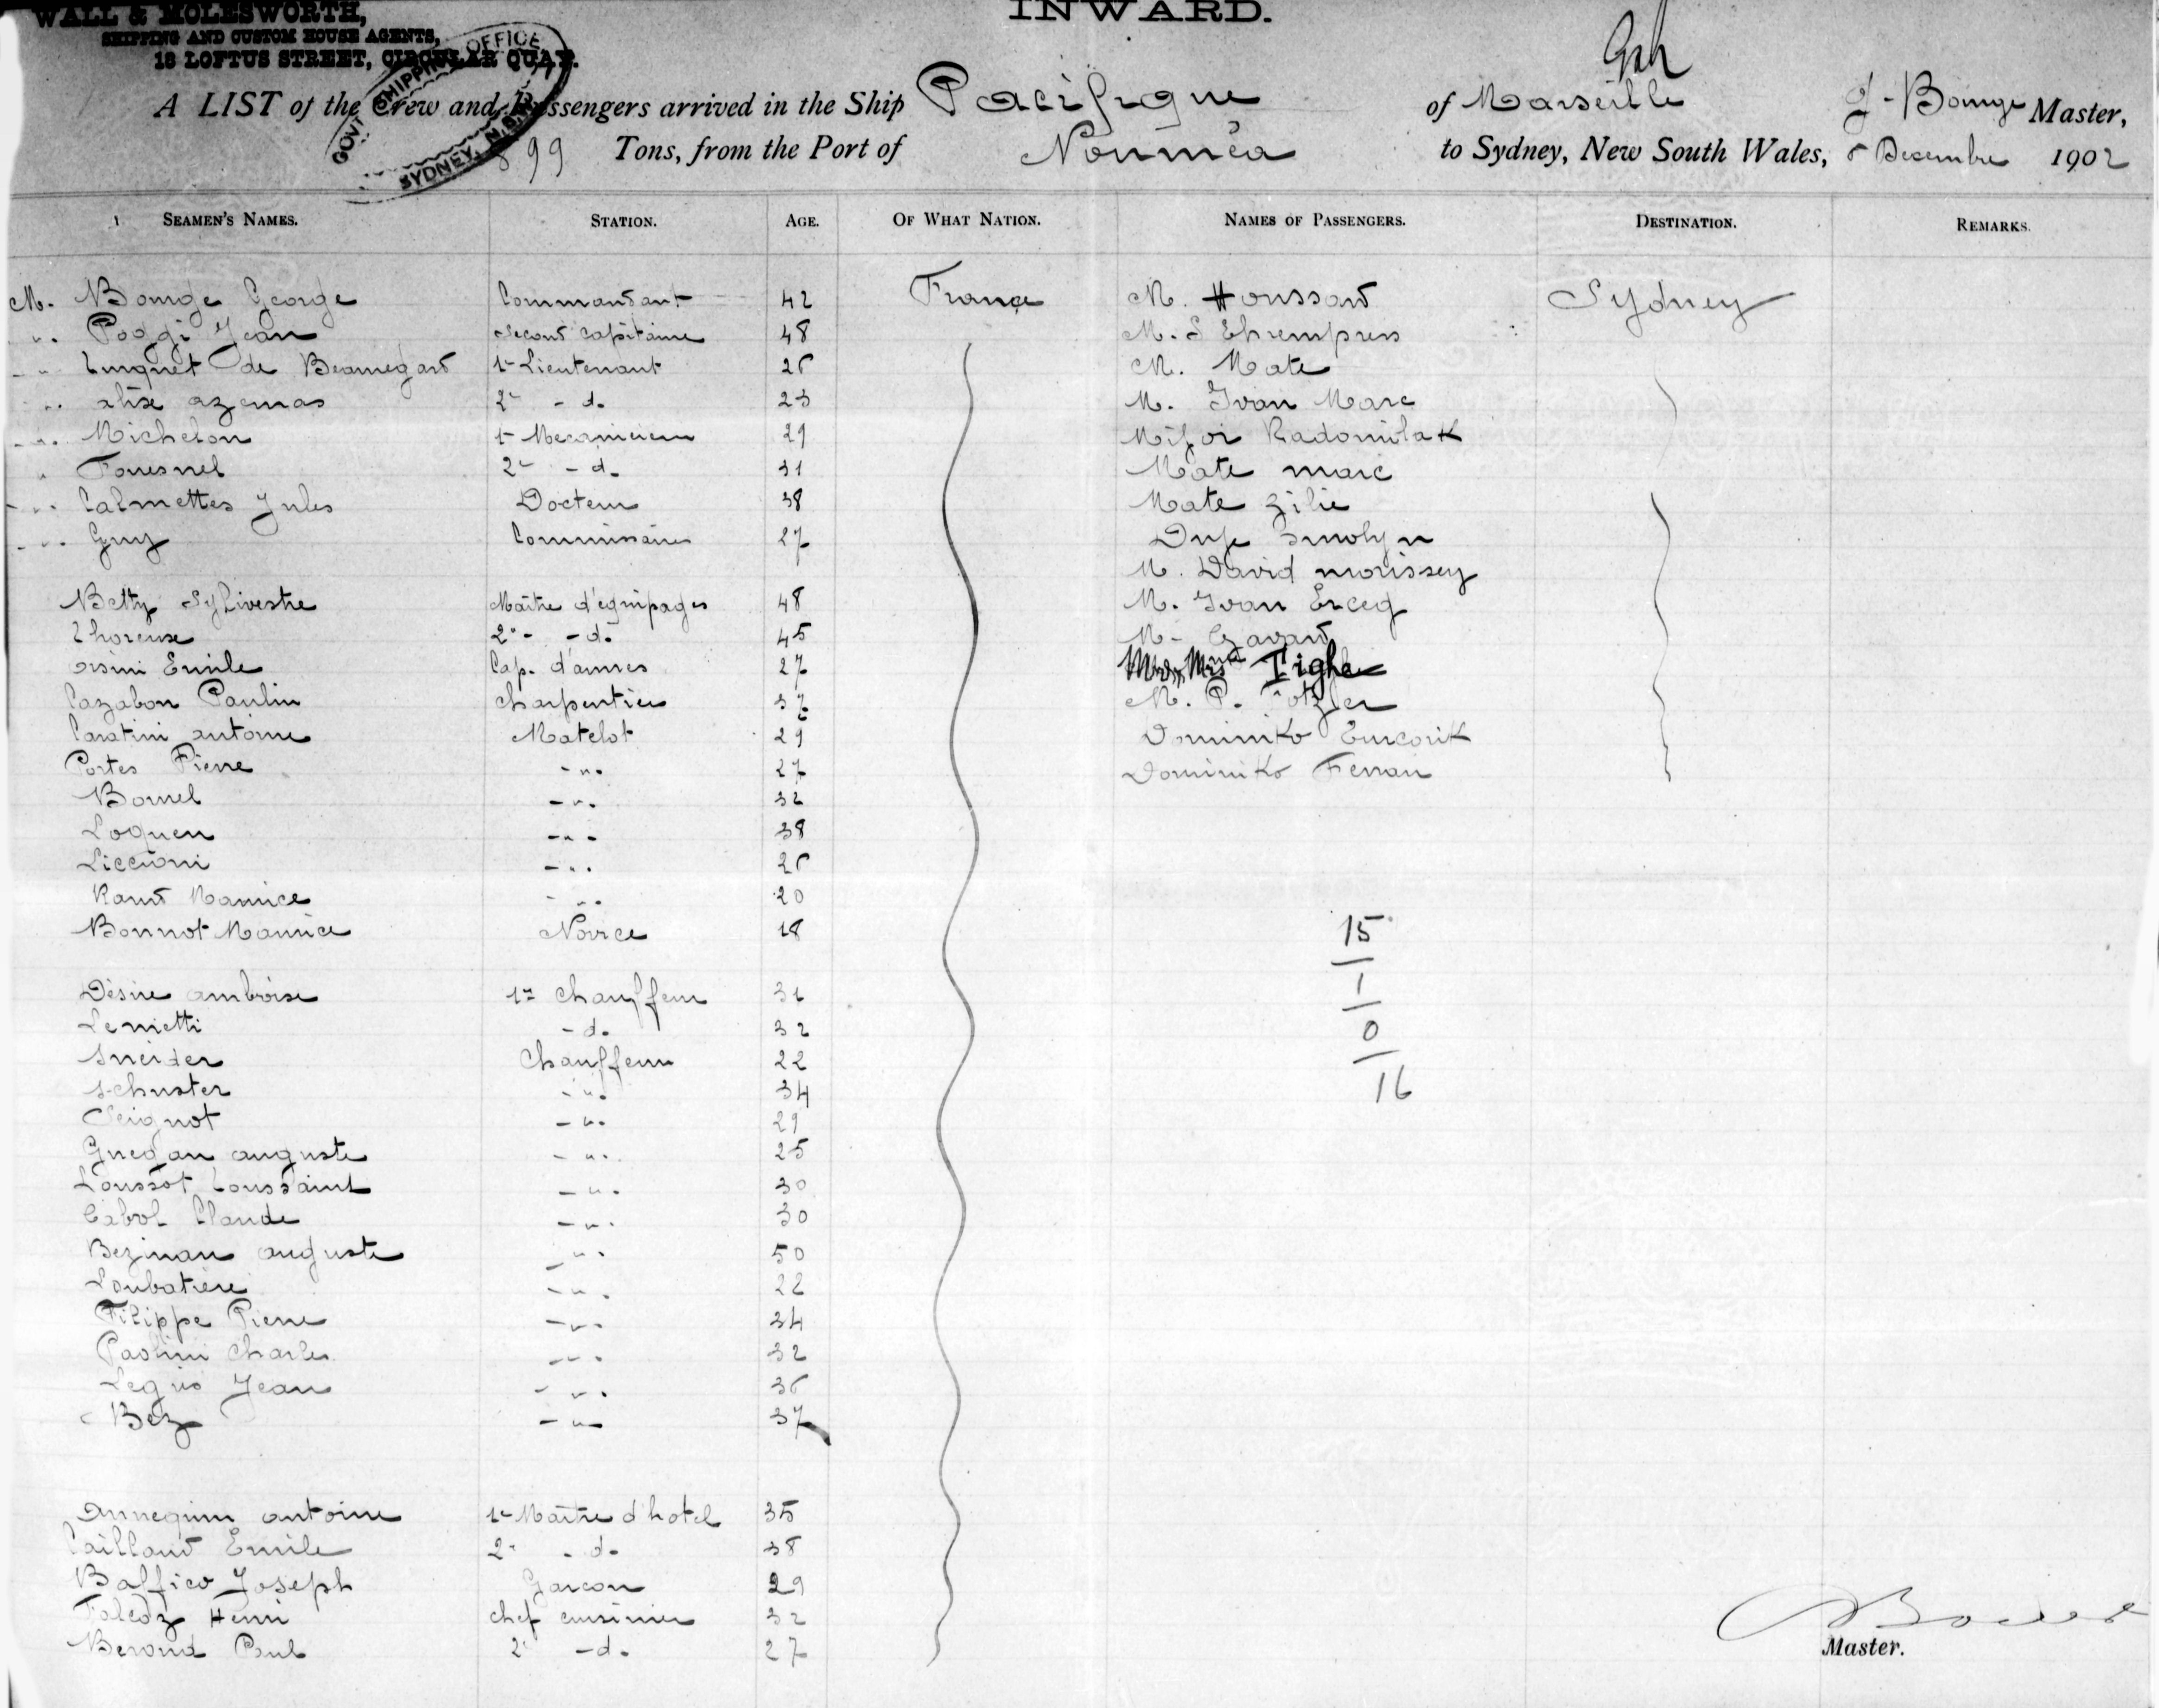 WALL & MOLESWORTH,
SHIPPING AND CUSTOM HOUSE AGENTS,
18 LOFTUS STREET, CIRCULAR QUAY.
INWARD.
GOVT SHIPPING OFFICE
SYDNEY, N.S.W.
A LIST of the Crew and Passengers arrived in the Ship Pacifique of Marseille G. Bourge Master,
899 Tons, from the Port of Nouméa to Sydney, New South Wales, Decembre 1902
SEAMEN'S NAMES. STATION. AGE. OF WHAT NATION. NAMES OF PASSENGERS. DESTINATION. REMARKS.
M. Bourge George Commandant 42 France M. Houssard Sydney
" Poggi Jean Second Capitaine 48 M. S Ehrempress
" de Beauregard 1r Lieutenant 26 M. Mate
" alise azemas 2e - d. 23 M. Ivan Marc
" Michelon 1r Mecanicien 29 Radomilak
" Fouesnel 2e - d. 31 Mate marc
" Calmettes Jules Docteur 38 Mate Zilie
" Guy Commissaire 27
M. David morissey
Betty Sylivestre Maître d'equipages 48 M. Ivan Erceg
Thoreuse 2e - d. 45 M. Gavard
orsini Emile Cap. d'armes 27 Tighe
Cazabon Paulin charpentier 37 M. P.
Caratini antoine Matelot 29 Dominiko
Portes Pierre - " - 27 Dominiko Ferran
Bornel - " - 32
Loquen - " - 38
Liccioni - " - 26
Maurice - " - 20
Bonnot Maurice Novice 18
15
1
0
16
Désire ambroise 1r Chauffeur 31
Lenietti - d. 32
Sneider Chauffeur 22
schuster - " - 34
Seignot - " - 29
Guegan auguste - " - 25
Toussot Toussaint - " - 30
Cabrol Claude - " - 30
Bezinau auguste - " - 50
Loubatiere - " - 22
Filippe Pierre - " - 34
Paolini Charles - " - 32
Jean - " - 36
Bez - " - 37
Annequin antoine 1r Maître d'hotel 35
Caillaud Emile 2e - d. 38
Balfico Joseph Garcon 29
Henri chef cuisinier 32
Berond Paul 2e - d. 27
Master.